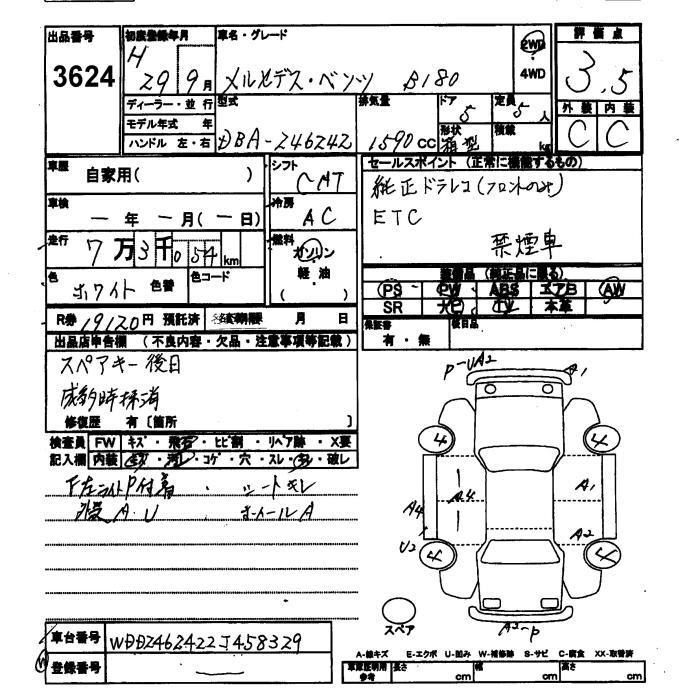 出品番号
3624
初度登録年月
H 29 9月
車名・グレード
メルセデス・ベンツ B180
2WD
・
4WD
評価点
3.5
外装 内装
C C
ディーラー・並行
モデル年式 年
ハンドル 左・右
型式
DBA-246242
排気量
1590cc
ドア
5
形状
箱型
定員
5人
積載
kg
車歴
自家用( )
車検
一年 一月(一日)
走行
7万3千054km
色
ホワイト 色替
色コード
シフト
CAT
冷房
AC
燃料
ガソリン
軽油
( )
セールスポイント (正常に機能するもの)
純正ドラレコ(フロントのみ)
ETC
禁煙車
装備品 (純正品に限る)
PS PW ABS エアB AW
SR ナビ TV 本革
R券 19120円 預託済
月 日
保証書
有・無
後日品
出品店申告欄 (不良内容・欠品・注意事項等記載)
スペアキー後日
成約時抹消
修復歴 有〔箇所 〕
検査員 FW キズ・飛石・ヒビ割・リペア跡・X要
記入欄 内装 ・コゲ・穴・スレ・ ・破レ
下左ライトP付着 ・シートキレ
A・U ホイールA
P-UA2
A1
4 4
A4 A4 A1
U2 A2
4 4
スペア
A2-P
車台番号 WDD2462422J458329
登録番号 —
A-線キズ E-エクボ U-凹み W-補修跡 S-サビ C-腐食 XX-取替済
車庫証明用参考 長さ cm 幅 cm 高さ cm